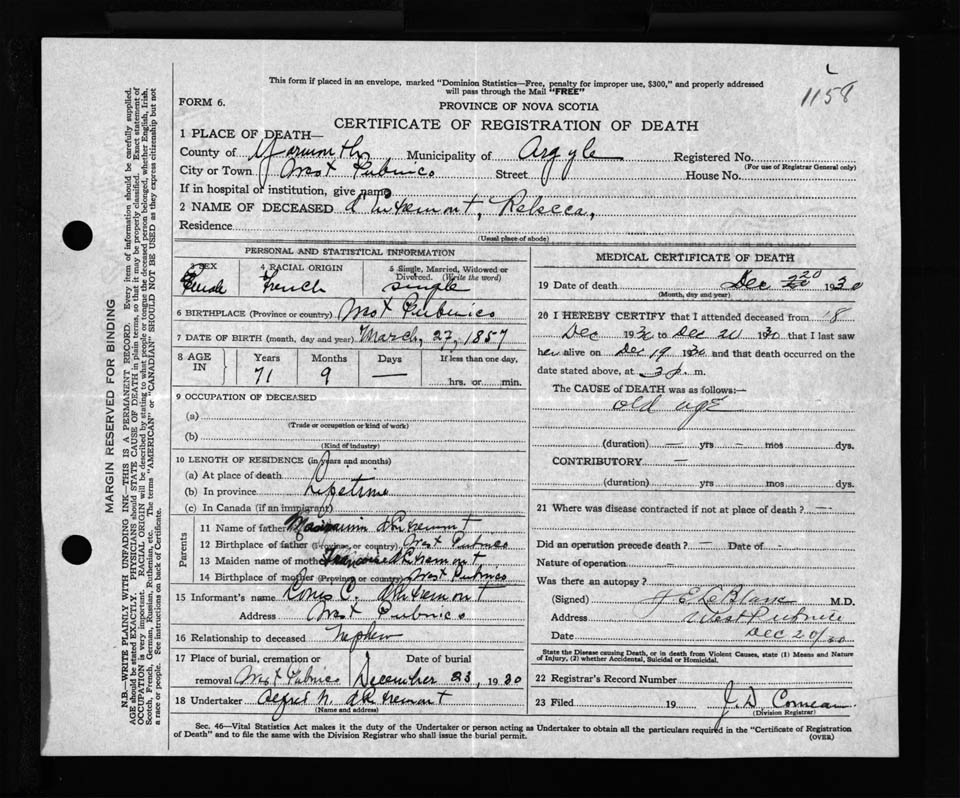 This form if placed in an envelope, marked "Dominion Statistics—Free, penalty for improper use, $300," and properly addressed
will pass through the Mail "FREE"
1158
FORM 6.
PROVINCE OF NOVA SCOTIA
CERTIFICATE OF REGISTRATION OF DEATH
1 PLACE OF DEATH—
County of Yarmouth Municipality of Argyle Registered No.
(For use of Registrar General only)
City or Town West Pubnico Street House No.
If in hospital or institution, give name
2 NAME OF DECEASED d'Entremont, Rebecca,
Residence
(Usual place of abode)
PERSONAL AND STATISTICAL INFORMATION
3 SEX 4 RACIAL ORIGIN 5 Single, Married, Widowed or Divorced. (Write the word)
Female French single
6 BIRTHPLACE (Province or country) West Pubnico
7 DATE OF BIRTH (month, day and year) March, 27, 1857
8 AGE IN Years Months Days If less than one day,
71 9 — hrs. or min.
9 OCCUPATION OF DECEASED
(a)
(Trade or occupation or kind of work)
(b)
(Kind of industry)
10 LENGTH OF RESIDENCE (in years and months)
(a) At place of death
(b) In province Lifetime
(c) In Canada (if an immigrant)
Parents
11 Name of father d'Entremont
12 Birthplace of father (Province, or country) West Pubnico
13 Maiden name of mother d'Entremont
14 Birthplace of mother (Province or country) West Pubnico
15 Informant's name C. d'Entremont
Address West Pubnico
16 Relationship to deceased Nephew
17 Place of burial, cremation or removal West Pubnico Date of burial December 23, 1930
18 Undertaker Alfred N. d'Entremont
(Name and address)
MEDICAL CERTIFICATE OF DEATH
19 Date of death Dec 20 1930
(Month, day and year)
20 I HEREBY CERTIFY that I attended deceased from 18
Dec 1930 to Dec 20 1930 that I last saw
her alive on Dec 19 1930 and that death occurred on the
date stated above, at 3 p. m.
The CAUSE of DEATH was as follows:—
old age
(duration) — yrs — mos dys.
CONTRIBUTORY —
(duration) yrs. mos. dys.
21 Where was disease contracted if not at place of death? —
Did an operation precede death? — Date of
Nature of operation —
Was there an autopsy?
(Signed) LeBlanc M.D.
Address West Pubnico
Date Dec 20/30
State the Disease causing Death, or in death from Violent Causes, state (1) Means and Nature
of Injury, (2) whether Accidental, Suicidal or Homicidal.
22 Registrar's Record Number
23 Filed 19 J. D. Comeau
(Division Registrar)
Sec. 46—Vital Statistics Act makes it the duty of the Undertaker or person acting as Undertaker to obtain all the particulars required in the "Certificate of Registration
of Death" and to file the same with the Division Registrar who shall issue the burial permit.
(OVER)
MARGIN RESERVED FOR BINDING
N.B.—WRITE PLAINLY WITH UNFADING INK—THIS IS A PERMANENT RECORD. Every item of information should be carefully supplied.
AGE should be stated EXACTLY. PHYSICIANS should STATE CAUSE OF DEATH in plain terms, so that it may be properly classified. Exact statement of
OCCUPATION is very important. RACIAL ORIGIN will be described by stating to what people or tongue the deceased person belonged, whether English, Irish,
Scotch, French, German, Russian, Ruthenian, etc. The terms "AMERICAN" or "CANADIAN" SHOULD NOT BE USED as they express citizenship but not
a race or people. See instructions on back of Certificate.